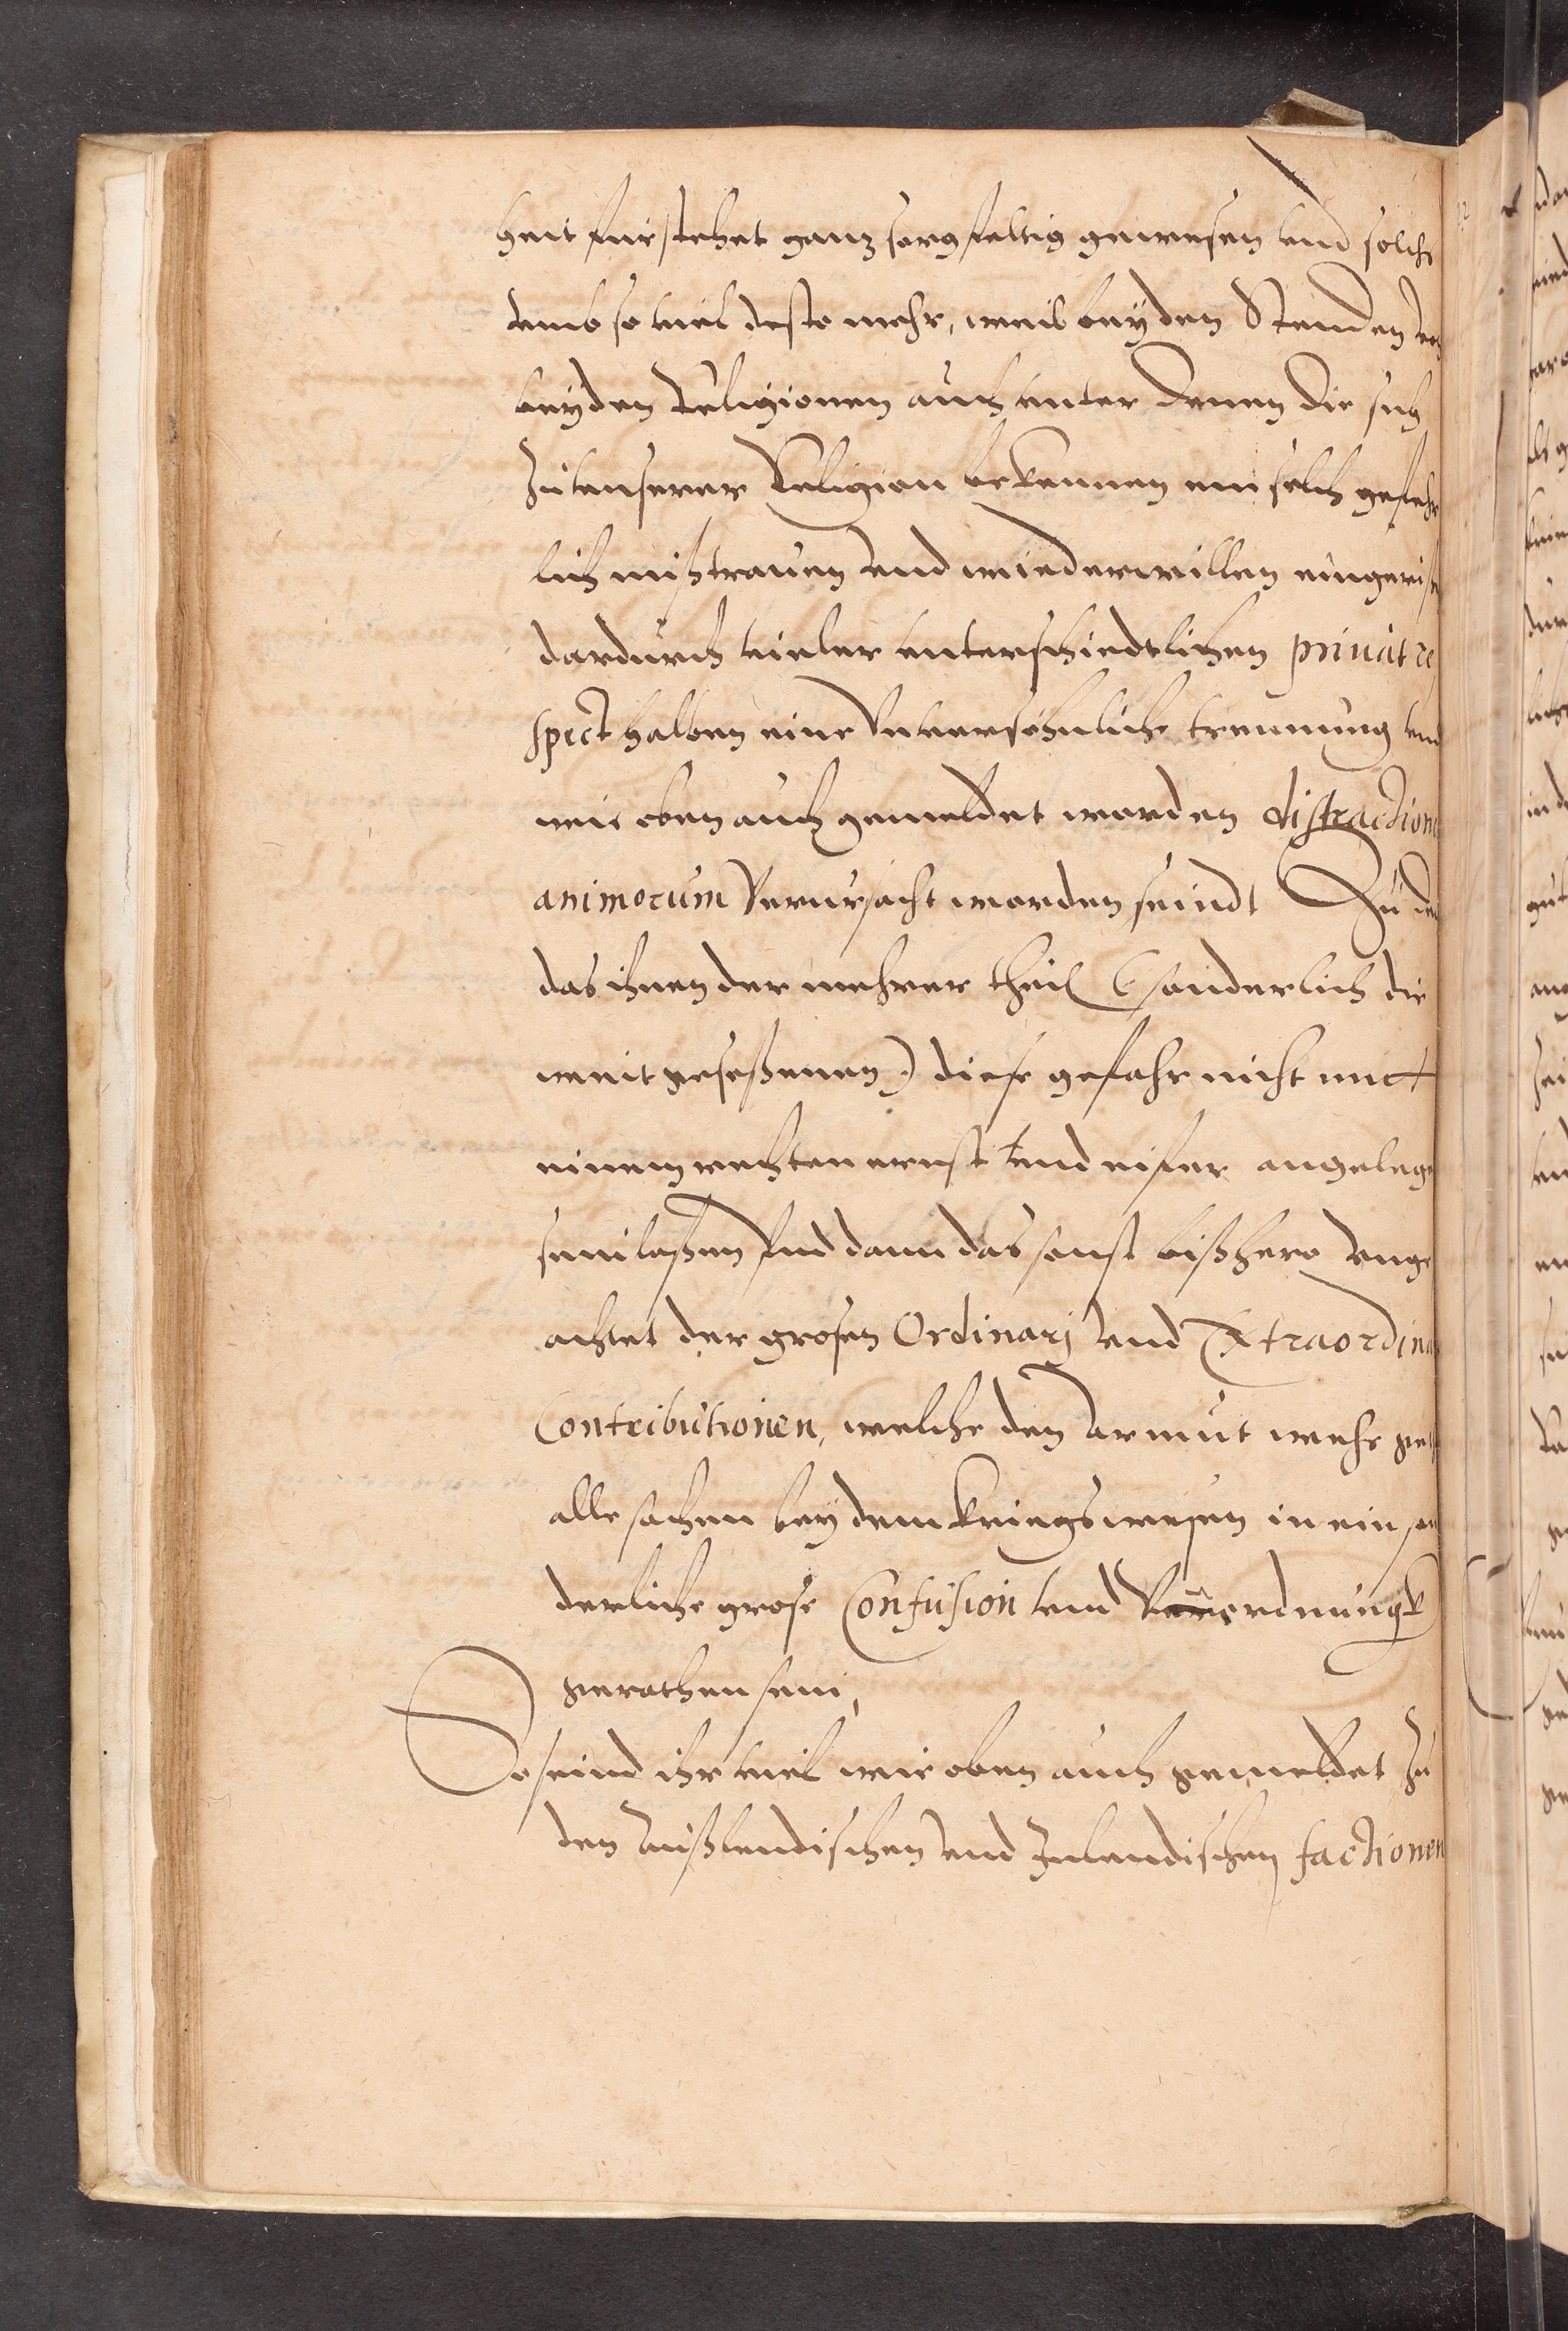 heit fürstehet ganz sorgfeltig gewesen vnd solchs
vmb so viel desto mehr, weil bey den Stenden von
beyden Religionen auch vnter denen die sich
zu vnserer Religion bekennen ein solch gefehr
lich mißtrauen vnd wiederwillen eingeriß
dardurch vieler vnterschiedtlichen priuat re
spect halben eine Vnversöhnliche trennung vnd
wie oben auch gemeldet worden distraction
animorum Verursacht worden seindt Zu dem
das ihnen der mehrer theil (sonderlich die
weit geseßenen) diese gefahr nicht mit
einem rechten ernst vnd eifer angelege
sein laßen Vnd dann das sonst bißhero vnge
achtet der großen Ordinarj vnd Extraordina
Contributionen, welche den Armut wehe get
alle sachen bey dem Kriegswesen in ein son
derliche große Confusion vnd Vnordnungk
gerathen sein,
So seind ihr viel wie oben auch gemeldet zu
den Außlendischen vnd Inlendischen factionen